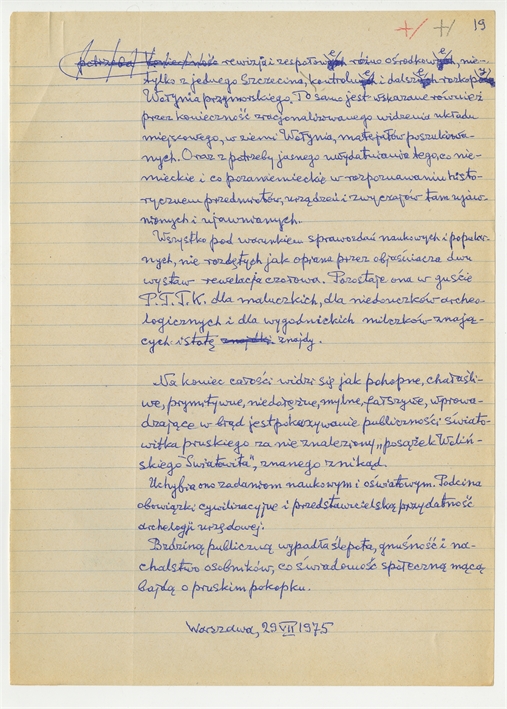 19
rewizja i zespołowe różno ośrodkowe, nie-
tylko z jednego Szczecina, kontrole i dalsze rozkopy
Wołynia przymorskiego. To samo jest wskazane również
przez konieczność zracjonalizowanego widzenia układu
miejscowego, w ziemi Wołynia, materjałów poszukiwa-
nych. Oraz z potrzeby jasnego uwydatniania tego, co nie-
mieckie i co pozaniemieckie w rozpoznawaniu histo-
rycznem przedmiotów, urządzeń i zwyczajów tam ujaw-
nionych i ujawnianych.
Wszystko pod warunkiem sprawozdań naukowych i popular-
nych, nie rozdętych jak oprana przez objaśniacza dwu
wystaw rewelacja czołowa. Pozostaje ona w guście
P.T.T.K. dla maluczkich, dla niedouczków archeo-
logicznych i dla wygodnickich milczków znają-
cych istotę znajdy.
Na koniec całości widzi się jak pohopne, chałaśli-
we, prymitywne, niedołężne, mylne, fałszywe, wprowa-
dzające w błąd jest pokazywanie publiczności świato-
witka pruskiego za nie znaleziony „posążek Woliń-
skiego Światowita", znanego znikąd.
Uchybia ono zadaniom naukowym i oświatowym. Podcina
obowiązki cywilizacyjne i przedstawicielską przydatność
archelogji urzędowej.
Bździną publiczną wypadła ślepota, gnuśność i na-
chalstwo osobników, co świadomość społeczną mącą
bajdą o pruskim pokopku.
Warszawa, 29 VII 1975